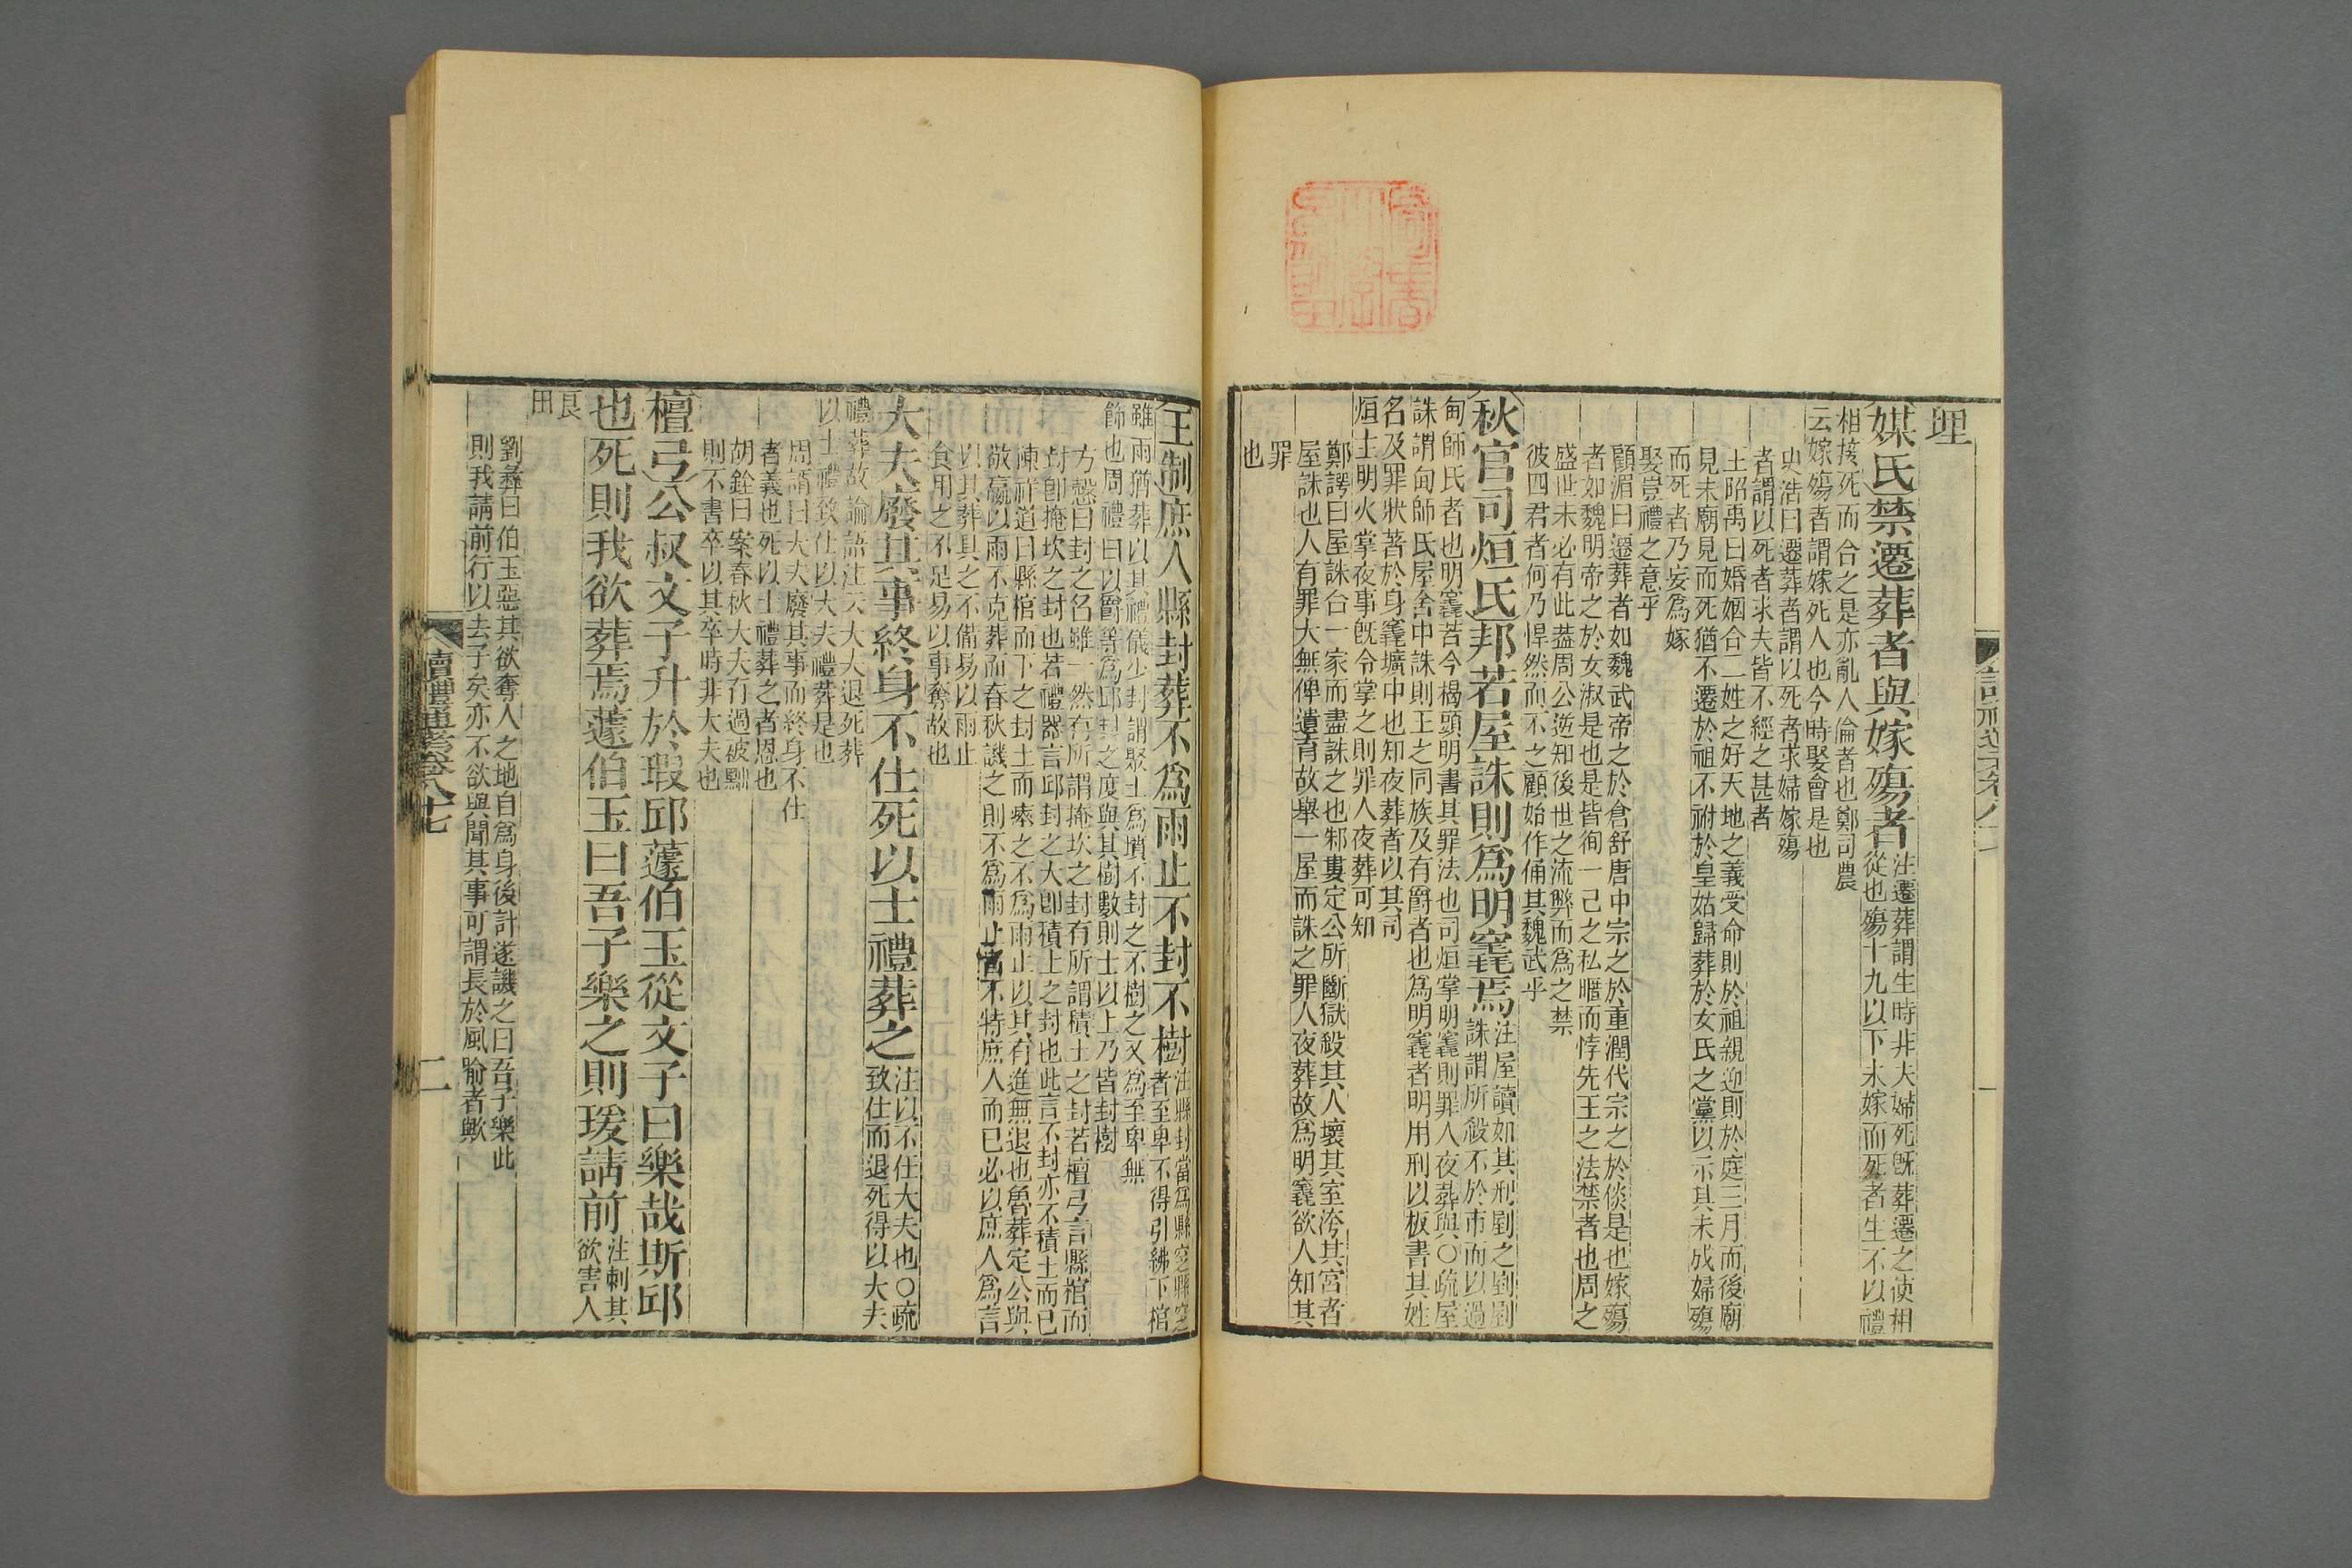 理
媒氏禁遷葬者與嫁殤者
注遷葬謂生時非夫婦死旣葬遷之使相
從也殤十九以下未嫁而死者生不以禮
相接死而合之是亦亂人倫者也鄭司農
云嫁殤者謂嫁死人也今時娶會是也
史浩曰遷葬者謂以死者求婦嫁殤
者謂以死者求夫皆不經之甚者
王昭禹曰婚姻合二姓之好天地之義受命則於祖親迎則於庭三月而後廟
見未廟見而死猶不遷於祖不祔於皇姑歸葬於女氏之黨以示其未成婦殤
而死者乃妄爲嫁
娶豈禮之意乎
顧湄曰遷葬者如魏武帝之於倉舒唐中宗之於重潤代宗之於倓是也嫁殤
者如魏明帝之於女淑是也是皆徇一己之私暱而悖先王之法禁者也周之
盛世未必有此葢周公逆知後世之流弊而爲之禁
彼四君者何乃悍然而不之顧始作俑其魏武乎
秋官司烜氏邦若屋誅則爲明竁焉
注屋讀如其刑剭之剭剭
誅謂所殺不於市而以過
甸師氏者也明竁若今楬頭明書其罪法也司烜掌明竁則罪人夜葬與〇疏屋
誅謂甸師氏屋舍中誅則王之同族及有爵者也爲明竁者明用刑以板書其姓
名及罪狀著於身竁壙中也知夜葬者以其司
烜主明火掌夜事旣令掌之則罪人夜葬可知
鄭諤曰屋誅合一家而盡誅之也邾婁定公所斷獄殺其人壞其室洿其宮者
屋誅也人有罪大無俾遺育故舉一屋而誅之罪人夜葬故爲明竁欲人知其
罪
也
王制庶人縣封葬不爲雨止不封不樹
注縣封當爲縣窆縣窆
者至卑不得引紼下棺
雖雨猶葬以其禮儀少封謂聚土爲墳不封之不樹之又爲至卑無
飾也周禮曰以爵等爲邱封之度與其樹數則士以上乃皆封樹
方慤曰封之名雖一然有所謂掩坎之封有所謂積土之封若檀弓言縣棺而
封卽掩坎之封也若禮器言邱封之大卽積土之封也此言不封亦不積土而已
陳祥道曰縣棺而下之封土而瘞之不爲雨止以其有進無退也魯葬定公與
敬嬴以雨不克葬而春秋譏之則不爲雨止者不特庶人而已必以庶人爲言
以其葬具之不備易以雨止
食用之不足易以事奪故也
大夫廢其事終身不仕死以士禮葬之
注以不任大夫也〇疏
致仕而退死得以大夫
禮葬故論語注云大夫退死葬
以士禮致仕以大夫禮葬是也
周諝曰大夫廢其事而終身不仕
者義也死以士禮葬之者恩也
胡銓曰案春秋大夫有過被黜
則不書卒以其卒時非大夫也
檀弓公叔文子升於瑕邱蘧伯玉從文子曰樂哉斯邱
也死則我欲葬焉蘧伯玉曰吾子樂之則瑗請前
注刺其
欲害人
良
田
劉彝曰伯玉惡其欲奪人之地自爲身後計遂譏之曰吾子樂此
則我請前行以去子矣亦不欲與聞其事可謂長於風喻者歟
讀禮通考卷八十七
二